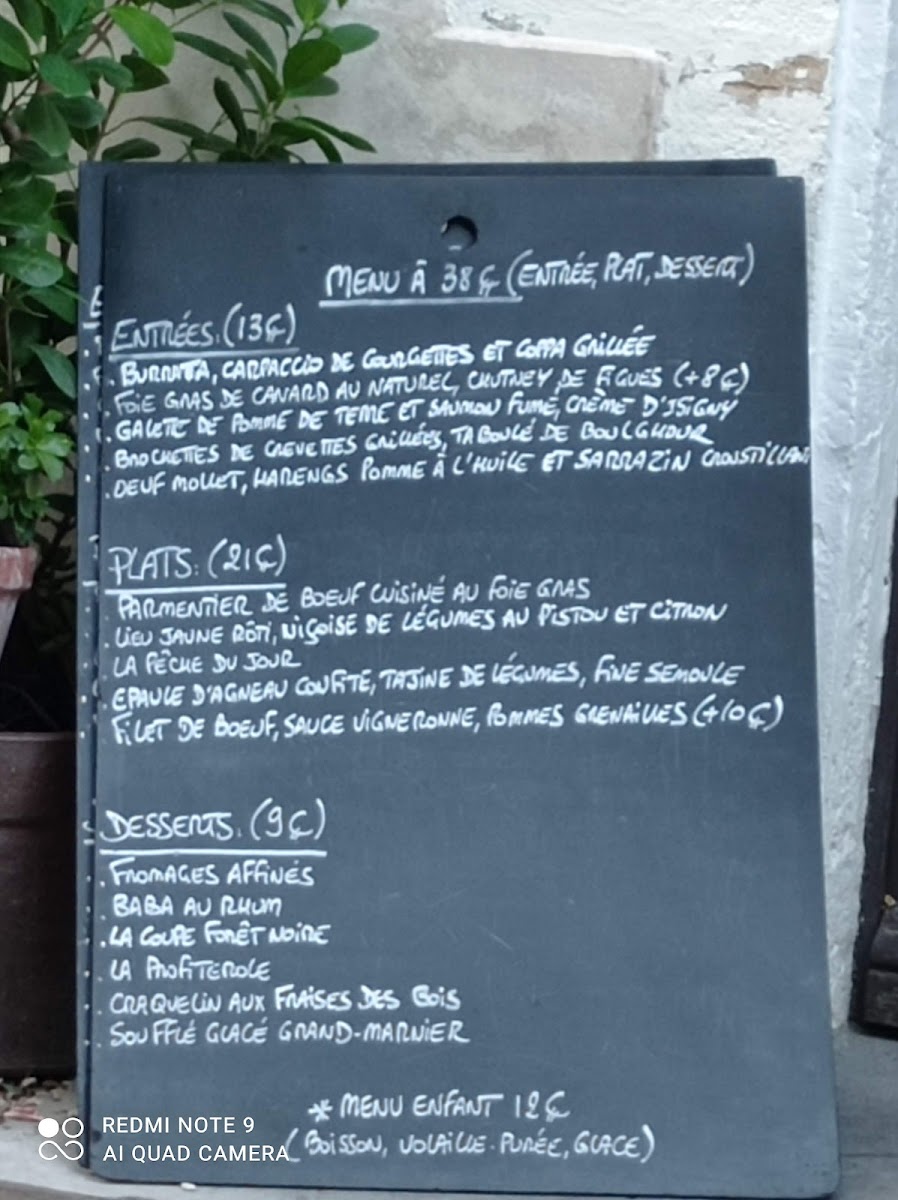 MENU À 38€ (ENTRÉE, PLAT, DESSERT)
ENTRÉES: (13€)
. BURRATA, CARPACCIO DE COURGETTES ET COPPA GRILLÉE
. FOIE GRAS DE CANARD AU NATUREL, CHUTNEY DE FIGUES (+8€)
. GALETTE DE POMME DE TERRE ET SAUMON FUMÉ, CRÈME D'ISIGNY
. BROCHETTES DE CREVETTES GRILLÉES, TABOULÉ DE BOULGHOUR
. OEUF MOLLET, HARENGS POMME À L'HUILE ET SARRAZIN CROUSTILLANT
PLATS: (21€)
. PARMENTIER DE BOEUF CUISINÉ AU FOIE GRAS
. LIEU JAUNE RÔTI, NIÇOISE DE LÉGUMES AU PISTOU ET CITRON
. LA PÊCHE DU JOUR
. EPAULE D'AGNEAU CONFITE, TAJINE DE LÉGUMES, FINE SEMOULE
. FILET DE BOEUF, SAUCE VIGNERONNE, POMMES GRENAILLES (+10€)
DESSERTS: (9€)
. FROMAGES AFFINÉS
. BABA AU RHUM
. LA COUPE FORÊT NOIRE
. LA PROFITEROLE
. CRAQUELIN AUX FRAISES DES BOIS
. SOUFFLÉ GLACÉ GRAND-MARNIER
* MENU ENFANT 12€
(BOISSON, VOLAILLE-PURÉE, GLACE)
REDMI NOTE 9
AI QUAD CAMERA